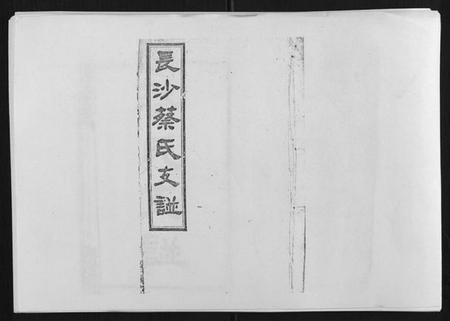 長沙蔡氏支譜